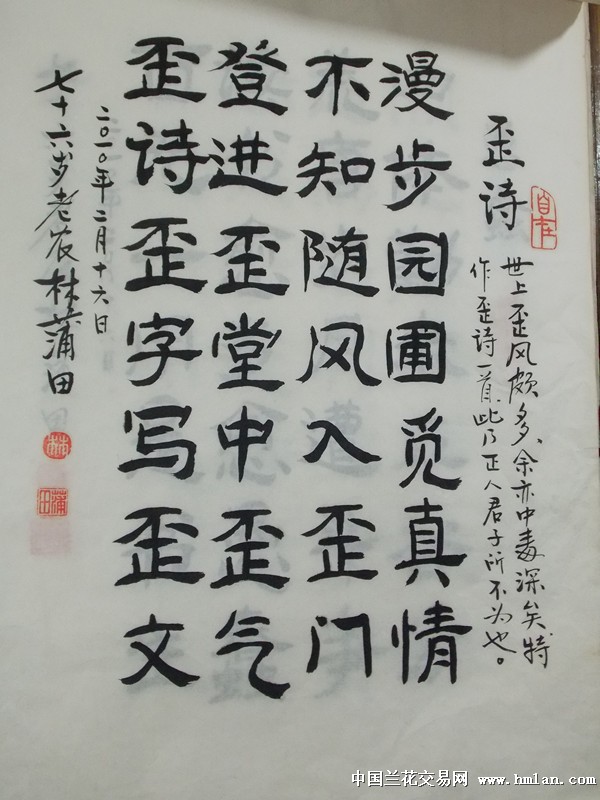 歪诗
自在
世上歪风颇多、余亦中毒深矣特
作歪诗一首、此乃正人君子所不为也。
漫步园圃觅真情
不知随风入歪门
登进歪堂中歪气
歪诗歪字写歪文
二〇一〇年二月十六日
七十六岁老农林蒲田
林
蒲田
中国兰花交易网 www.hmlan.com